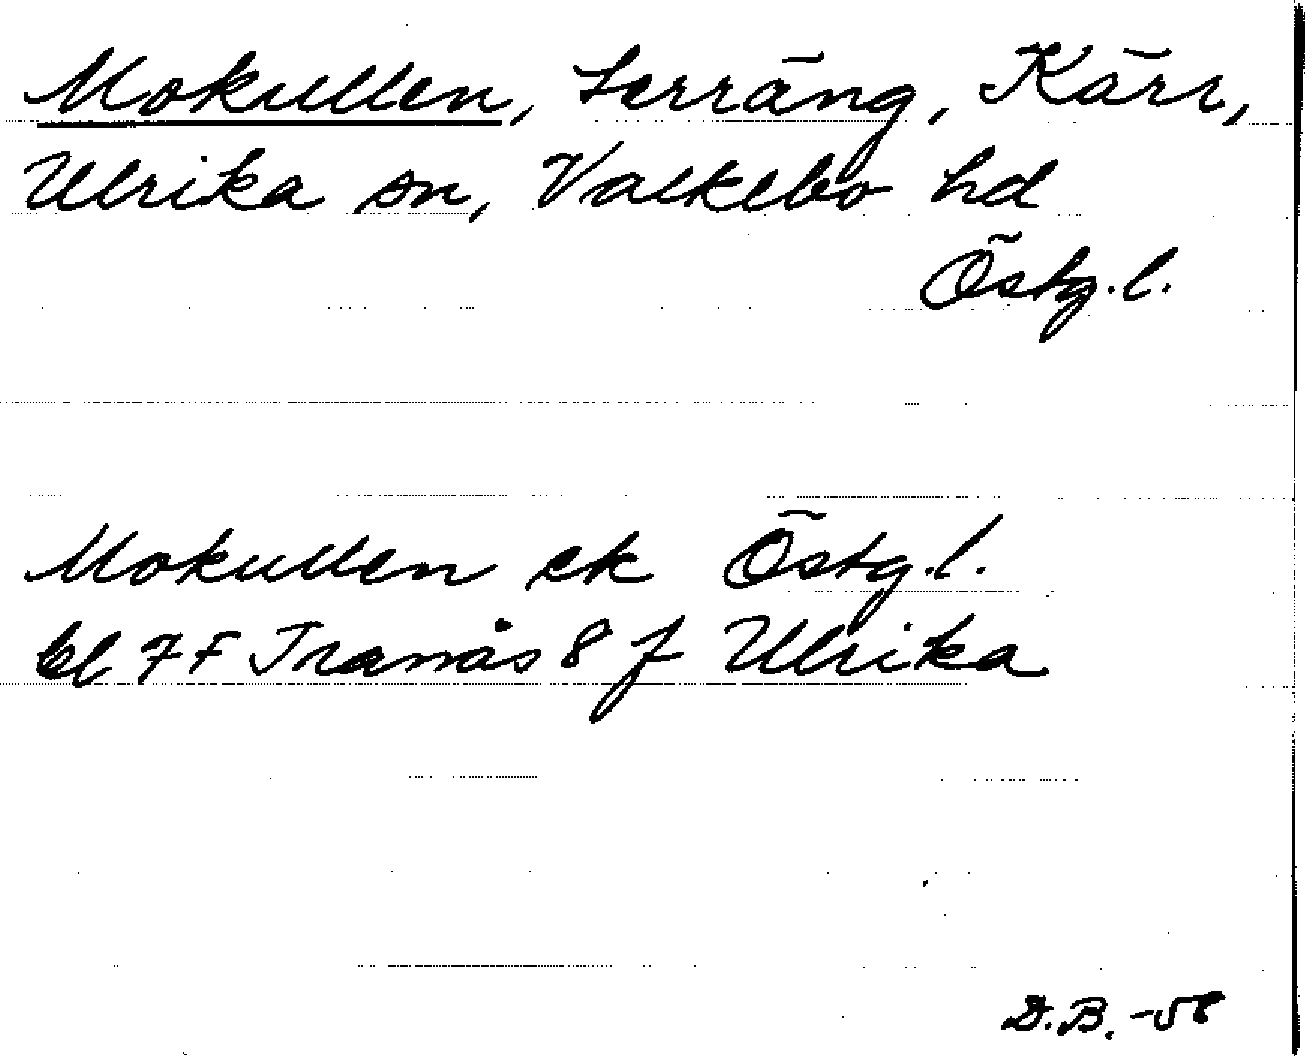 Mokullen, terräng, Kärr,
Ulrika sn, Valkebo hd
Östg.l.
Mokullen ek Östg.l.
bl 7F Tranås 8 f Ulrika
D.B. -58